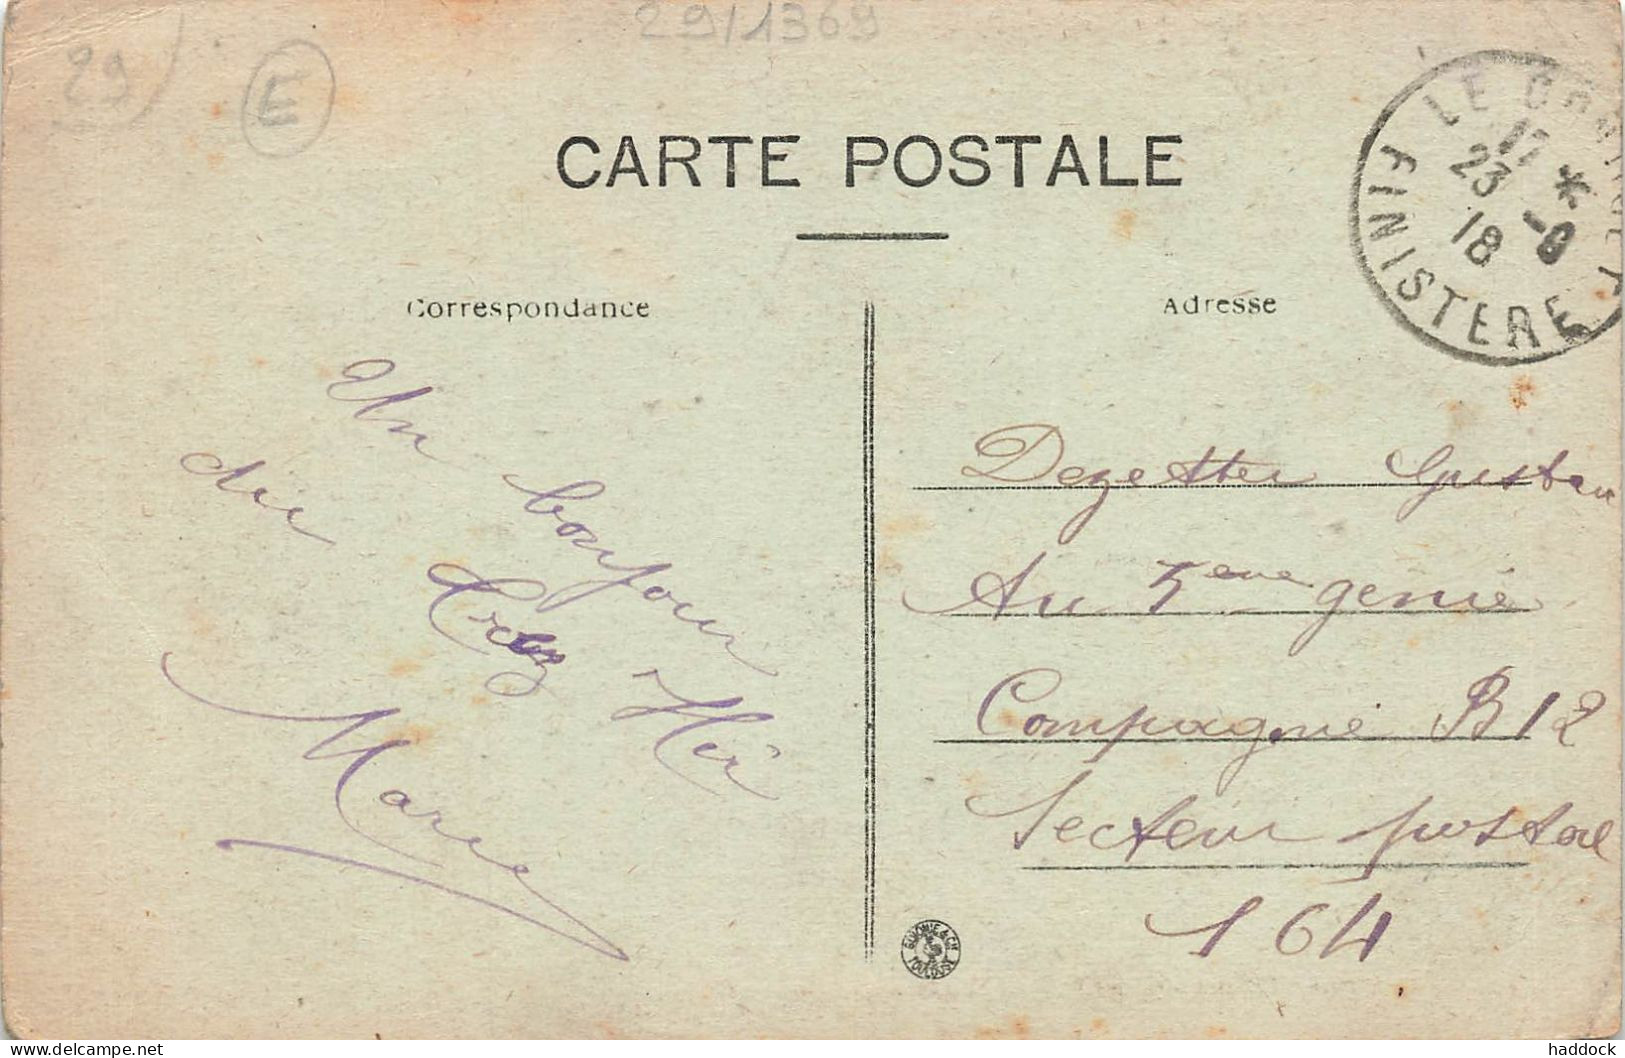 29/1369
29
E
CARTE POSTALE
LE CONQUET
17 *
23 -6
18
FINISTERE
Correspondance
Adresse
Un bonjour
du
Marie
Dezetter Gustave
Au 5eme genie
Compagnie B12
Secteur postal
164
TOULOUSE
haddock